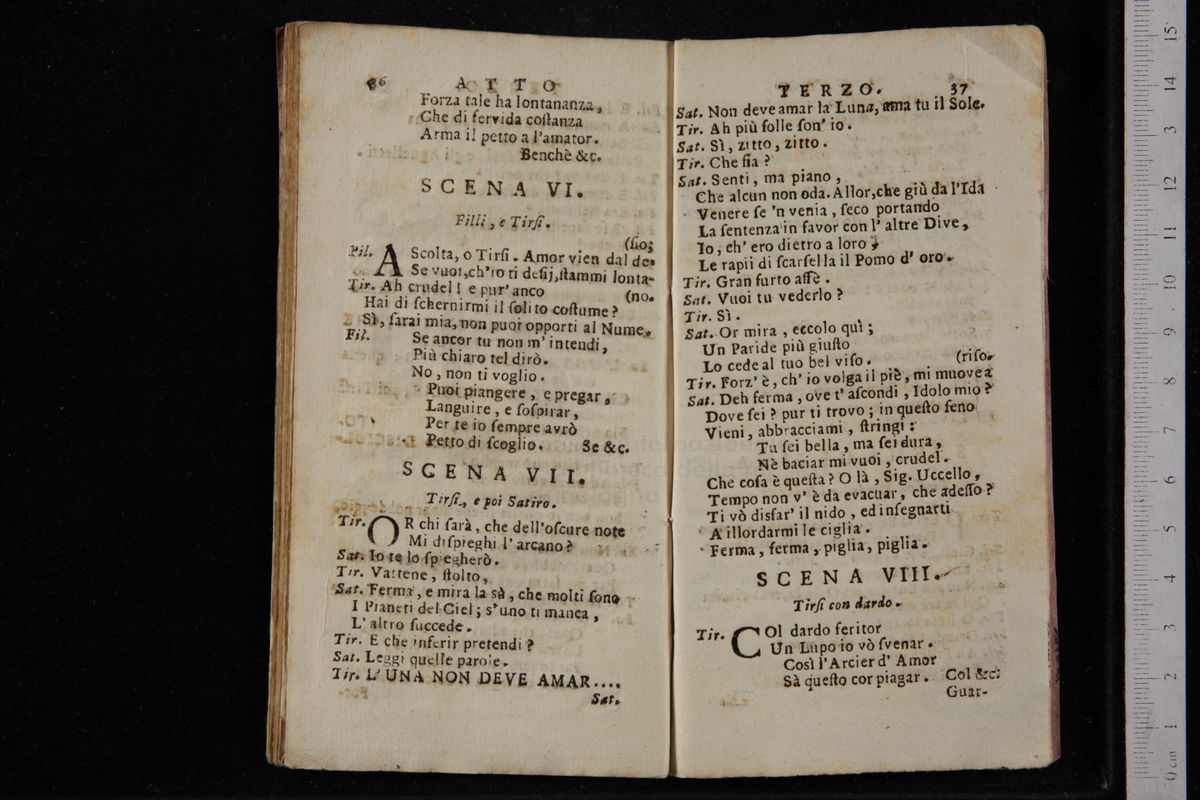 36 ATTO
Forza tale ha lontananza,
Che di fervida coſtanza
Arma il petto a l'amator.
Benchè &c.
SCENA VI.
Filli, e Tirſi.
(ſio;
Fil. AScolta, o Tirſi. Amor vien dal de-
Se vuoi, ch'io ti deſij, ſtammi lonta-
Tir. Ah crudel! e pur'anco (no.
Hai di ſchernirmi il ſolito coſtume?
Sì, ſarai mia, non puoi opporti al Nume.
Fil. Se ancor tu non m'intendi,
Più chiaro tel dirò.
No, non ti voglio.
Puoi piangere, e pregar,
Languire, e ſoſpirar,
Per te io ſempre avrò
Petto di ſcoglio. Se &c.
SCENA VII.
Tirſi, e poi Satiro.
Tir. OR chi ſarà, che dell'oſcure note
Mi diſpieghi l'arcano?
Sat. Io te lo ſpiegherò.
Tir. Vattene, ſtolto,
Sat. Ferma, e mira la sù, che molti ſono
I Pianeti del Ciel; s'uno ti manca,
L'altro ſuccede.
Tir. E che inferir pretendi?
Sat. Leggi quelle parole.
Tir. L'UNA NON DEVE AMAR....
Sat.
TERZO. 37
Sat. Non deve amar la Luna, ama tu il Sole.
Tir. Ah più folle ſon'io.
Sat. Sì, zitto, zitto.
Tir. Che ſia?
Sat. Senti, ma piano,
Che alcun non oda. Allor, che giù da l'Ida
Venere ſe 'n venia, ſeco portando
La ſentenza in favor con l'altre Dive,
Io, ch'ero dietro a loro,
Le rapii di ſcarſella il Pomo d'oro.
Tir. Gran furto affè.
Sat. Vuoi tu vederlo?
Tir. Sì.
Sat. Or mira, eccolo quì;
Un Paride più giuſto
Lo cede al tuo bel viſo. (riſo.
Tir. Forz'è, ch'io volga il piè, mi muove a
Sat. Deh ferma, ove t'aſcondi, Idolo mio?
Dove ſei? pur ti trovo; in queſto ſeno
Vieni, abbracciami, ſtringi:
Tu ſei bella, ma ſei dura,
Nè baciar mi vuoi, crudel.
Che coſa è queſta? O là, Sig. Uccello,
Tempo non v'è da evacuar, che adeſſo?
Ti vò disfar' il nido, ed inſegnarti
A illordarmi le ciglia.
Ferma, ferma, piglia, piglia.
SCENA VIII.
Tirſi con dardo.
Tir. COl dardo feritor
Un Lupo io vò ſvenar.
Così l'Arcier d'Amor
Sà queſto cor piagar. Col &c.
Guar-
0 cm 1 2 3 4 5 6 7 8 9 10 11 12 13 14 15